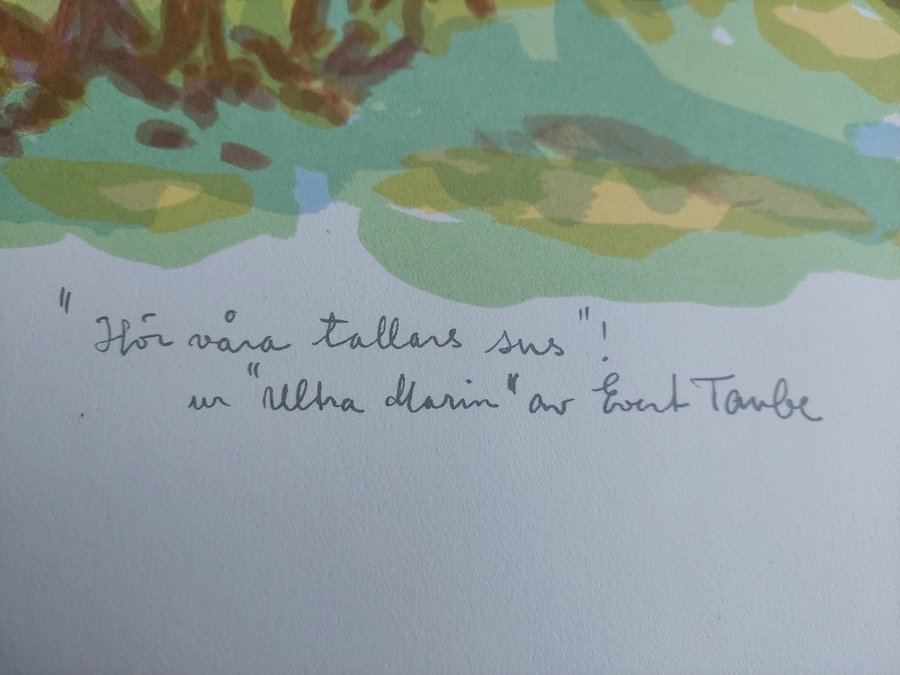 "Hör våra tallars sus"!
ur "Ultra Marin" av Evert Taube